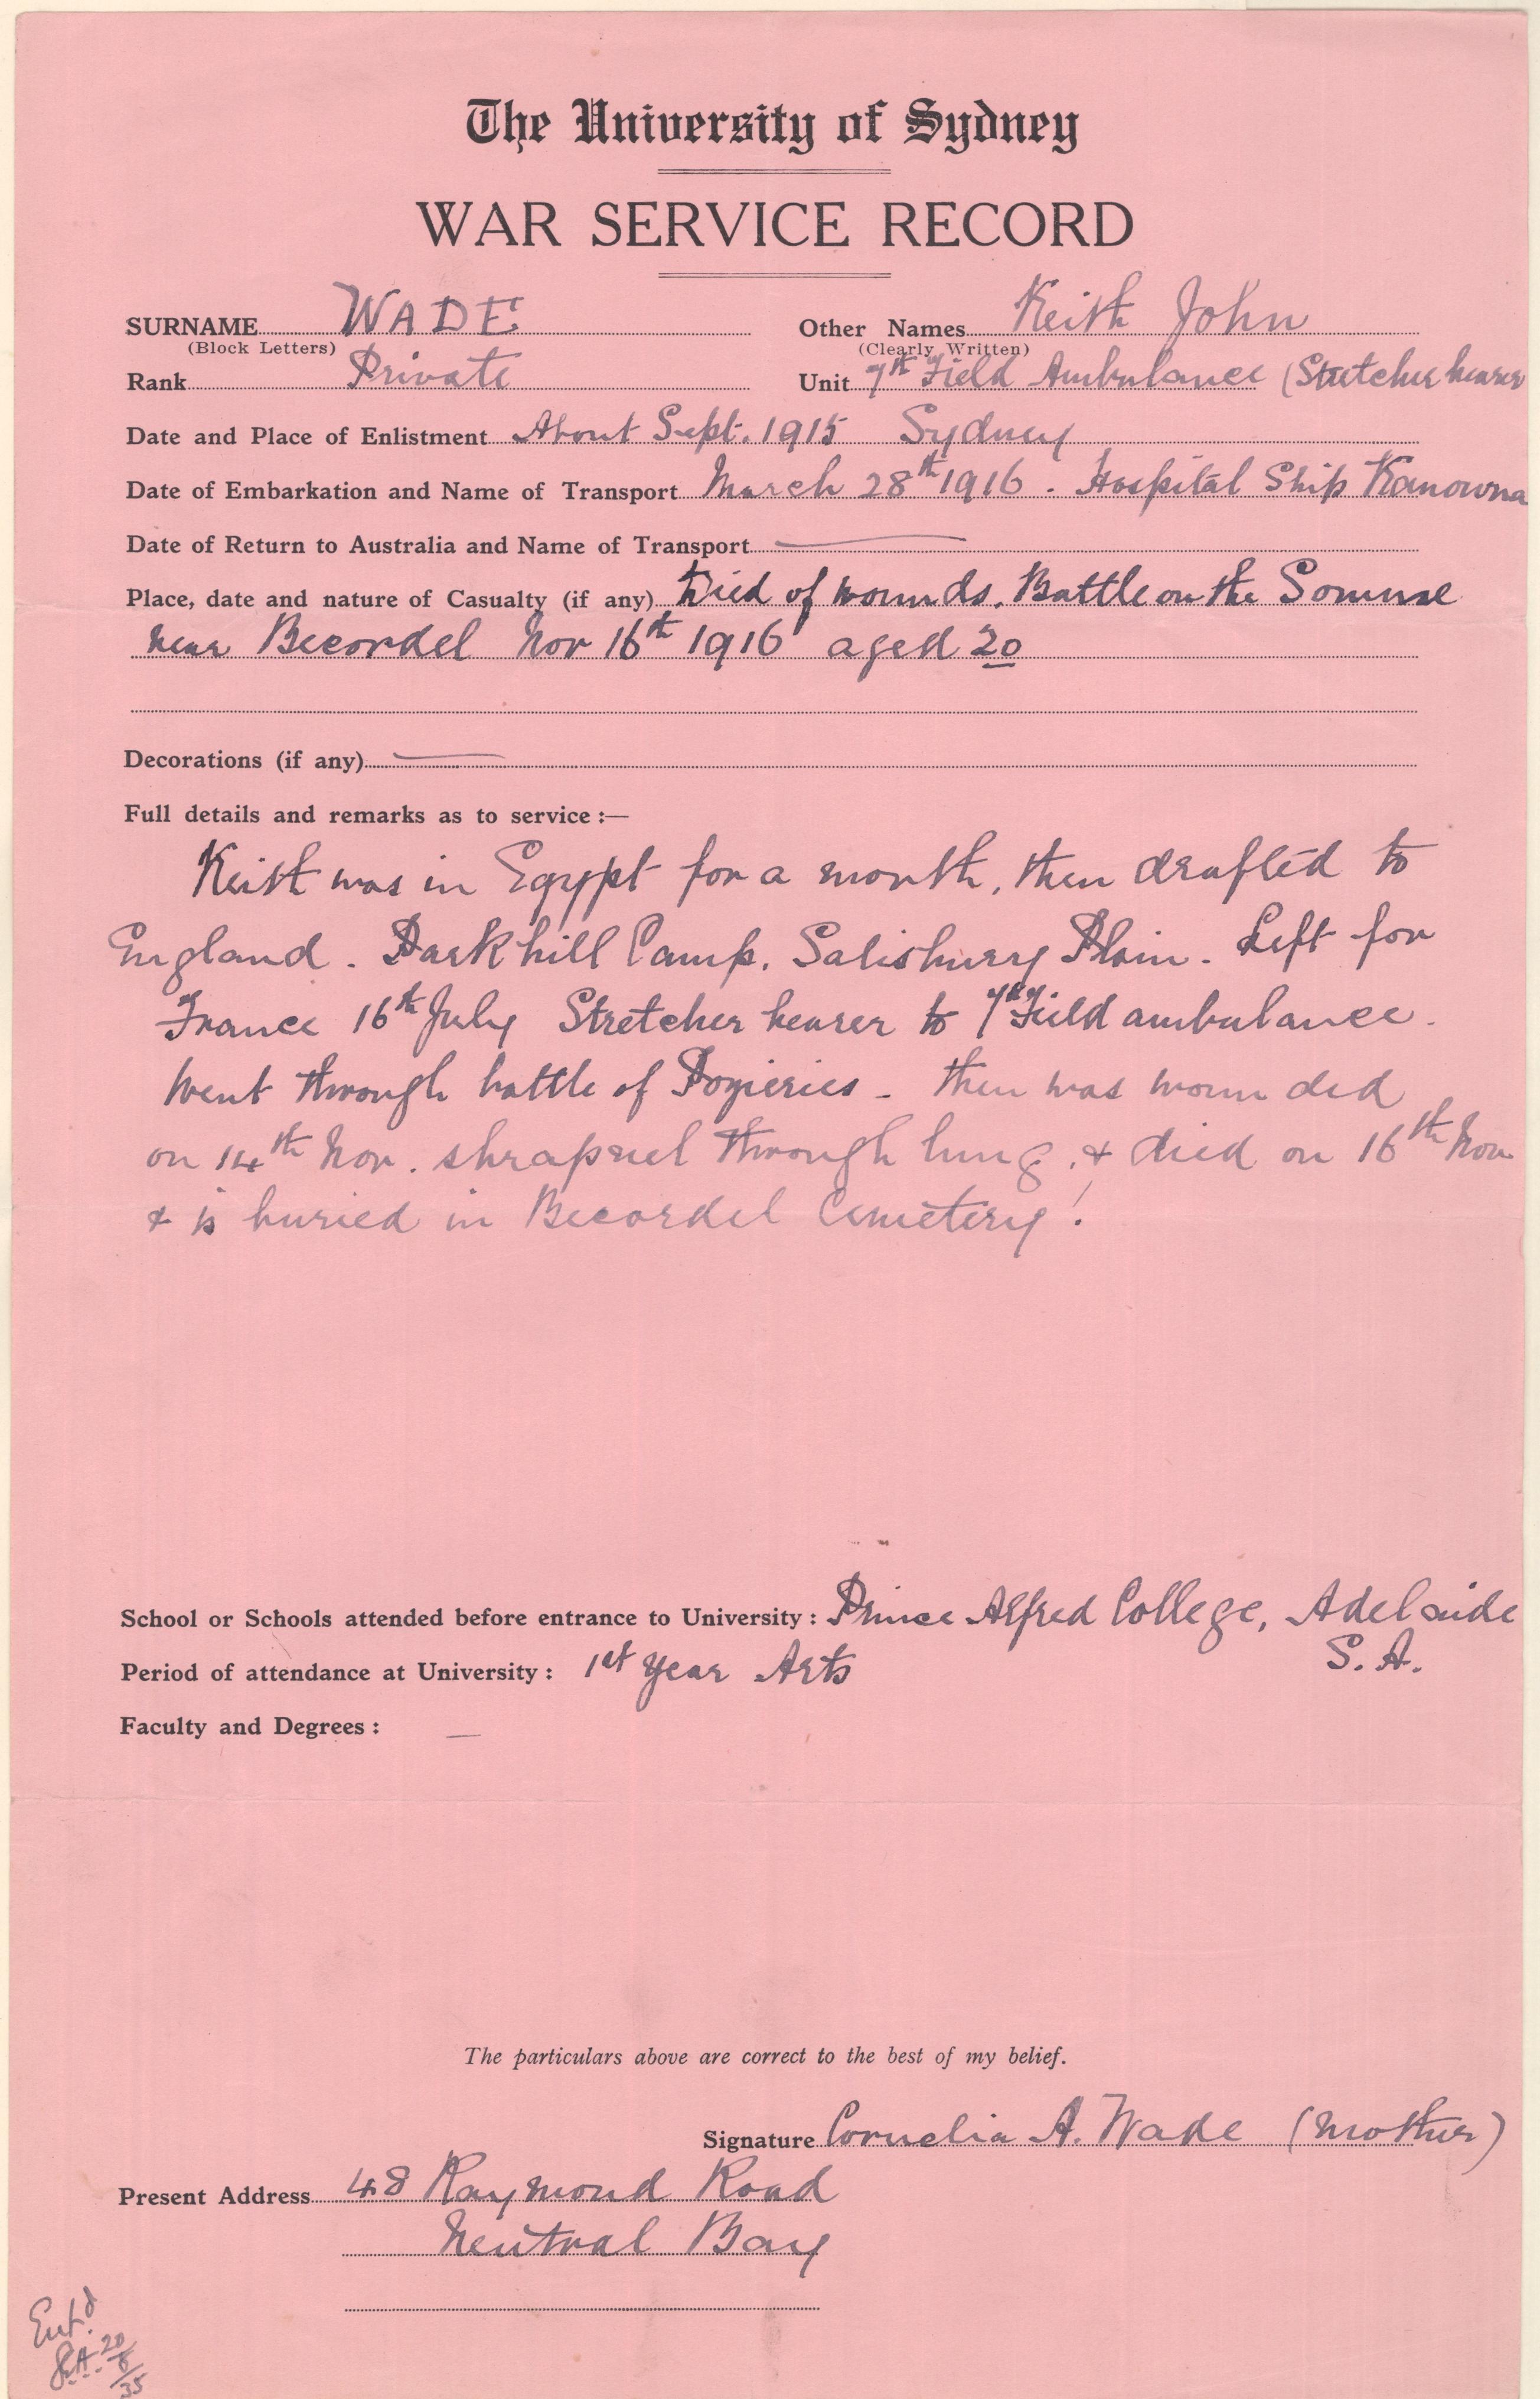 The University of Sydney
WAR SERVICE RECORD
SURNAME WADE Other Names Keith John
(Block Letters) (Clearly Written)
Rank Private Unit 7th Field Ambulance (Stretcher bearer
Date and Place of Enlistment About Sept. 1915 Sydney
Date of Embarkation and Name of Transport March 28th 1916 . Hospital Ship Kanowna
Date of Return to Australia and Name of Transport —
Place, date and nature of Casualty (if any) Died of wounds. Battle on the Somme
near Becordel Nov 16th 1916 aged 20
Decorations (if any) —
Full details and remarks as to service :—
Keith was in Egypt for a month, then drafted to
England . Parkhill Camp. Salisbury Plain . Left for
France 16th July Stretcher bearer to 7th Field ambulance .
Went through battle of Pozieries - then was wounded
on 14th Nov . shrapnel through lung , & died on 16th Nov
& is buried in Becordel Cemetery !
School or Schools attended before entrance to University : Prince Alfred College, Adelaide
S. A.
Period of attendance at University : 1st year Arts
Faculty and Degrees : —
The particulars above are correct to the best of my belief.
Signature Cornelia A. Wade (Mother)
Present Address 48 Raymond Road
Neutral Bay
Ent.d
20/8/35